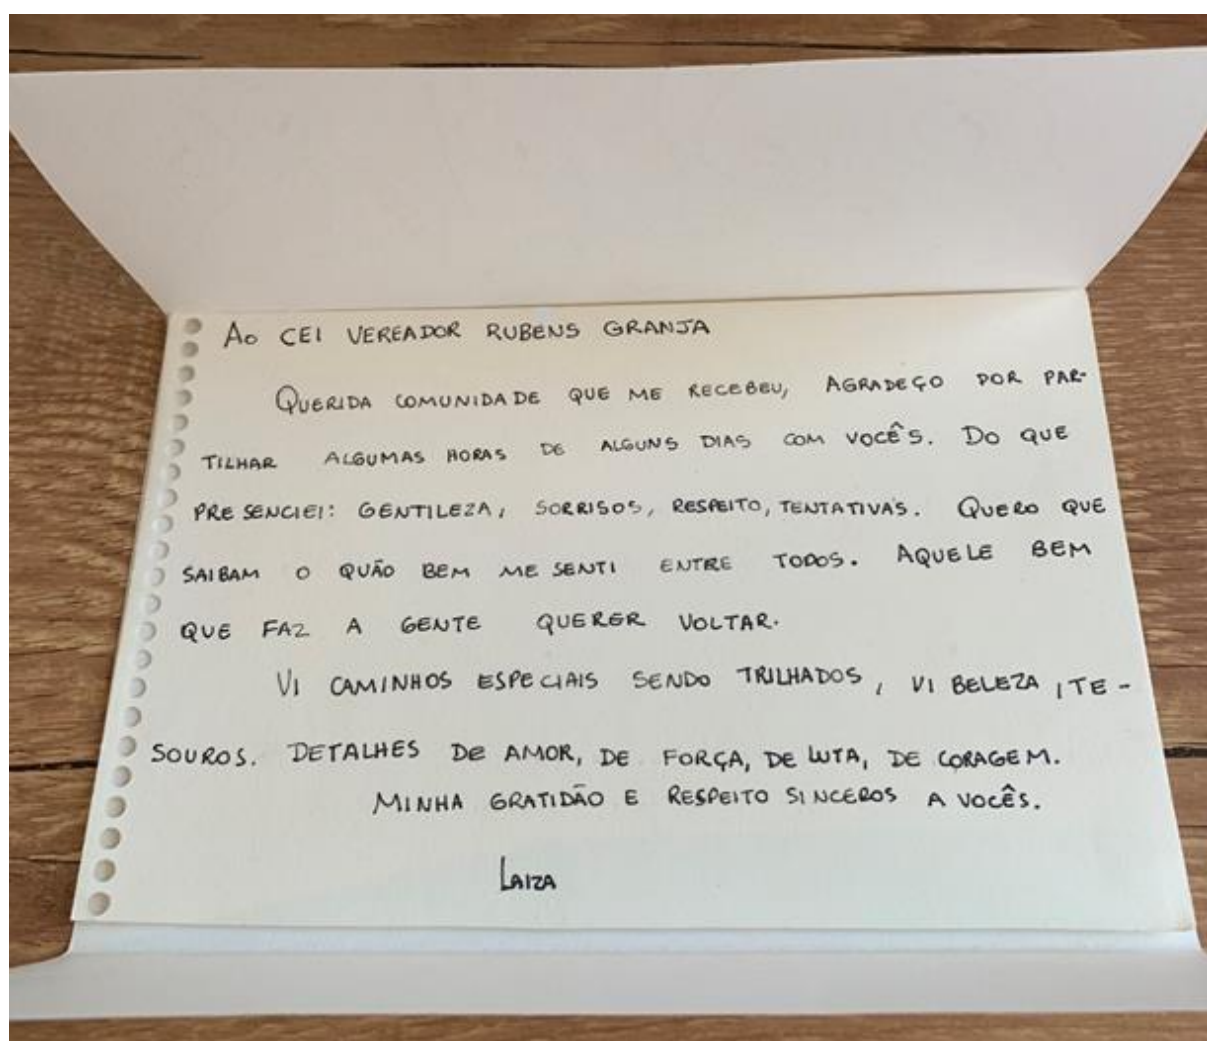 Ao CEI VEREADOR RUBENS GRANJA
QUERIDA COMUNIDADE QUE ME RECEBEU, AGRADEÇO POR PAR-
TILHAR ALGUMAS HORAS DE ALGUNS DIAS COM VOCÊS. DO QUE
PRESENCIEI: GENTILEZA, SORRISOS, RESPEITO, TENTATIVAS. QUERO QUE
SAIBAM O QUÃO BEM ME SENTI ENTRE TODOS. AQUELE BEM
QUE FAZ A GENTE QUERER VOLTAR.
VI CAMINHOS ESPECIAIS SENDO TRILHADOS, VI BELEZA, TE-
SOUROS. DETALHES DE AMOR, DE FORÇA, DE LUTA, DE CORAGEM.
MINHA GRATIDÃO E RESPEITO SINCEROS A VOCÊS.
LAIZA